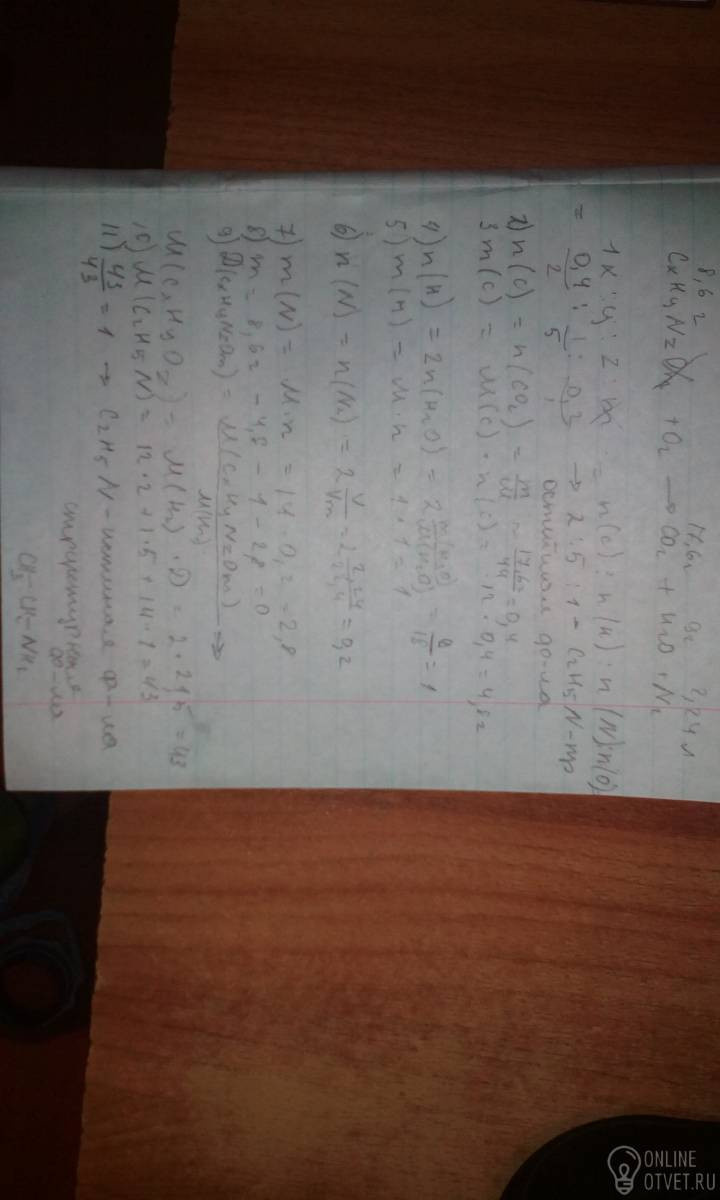 8,6 г 17,6г 9г 2,24 л
CxHyNzOm + O2 → CO2 + H2O + N2
1 x : y : z : m = n(C) : n(H) : n(N) : n(O)
= 0,4 : 1 : 0,2 → 2 : 5 : 1 - C2H5N - пр
2 5
ф-ла
2) n(C) = n(CO2) = m/M = 17,6/44 = 0,4
3 m(C) = M(C) · n(C) = 12 · 0,4 = 4,8г
4) n(H) = 2n(H2O) = 2 m(H2O)/M(H2O) = 9/18 = 1
5) m(H) = M · n = 1 · 1 = 1
6) n(N) = n(N2) = 2 V/Vm = 2 2,24/22,4 = 0,2
7) m(N) = M · n = 14 · 0,2 = 2,8
8) m = 8,6г - 4,8 - 1 - 2,8 = 0
9) D(CxHyNzOm) = M(CxHyNzOm)/M(H2) →
M(CxHyOz) = M(H2) · D = 2 · 21,5 = 43
10) M(C2H5N) = 12·2 + 1·5 + 14·1 = 43
11) 43/43 = 1 → C2H5N - истинная ф-ла
структурная
ф-ла
CH3-CH2-NH2
ONLINE
OTVET.RU